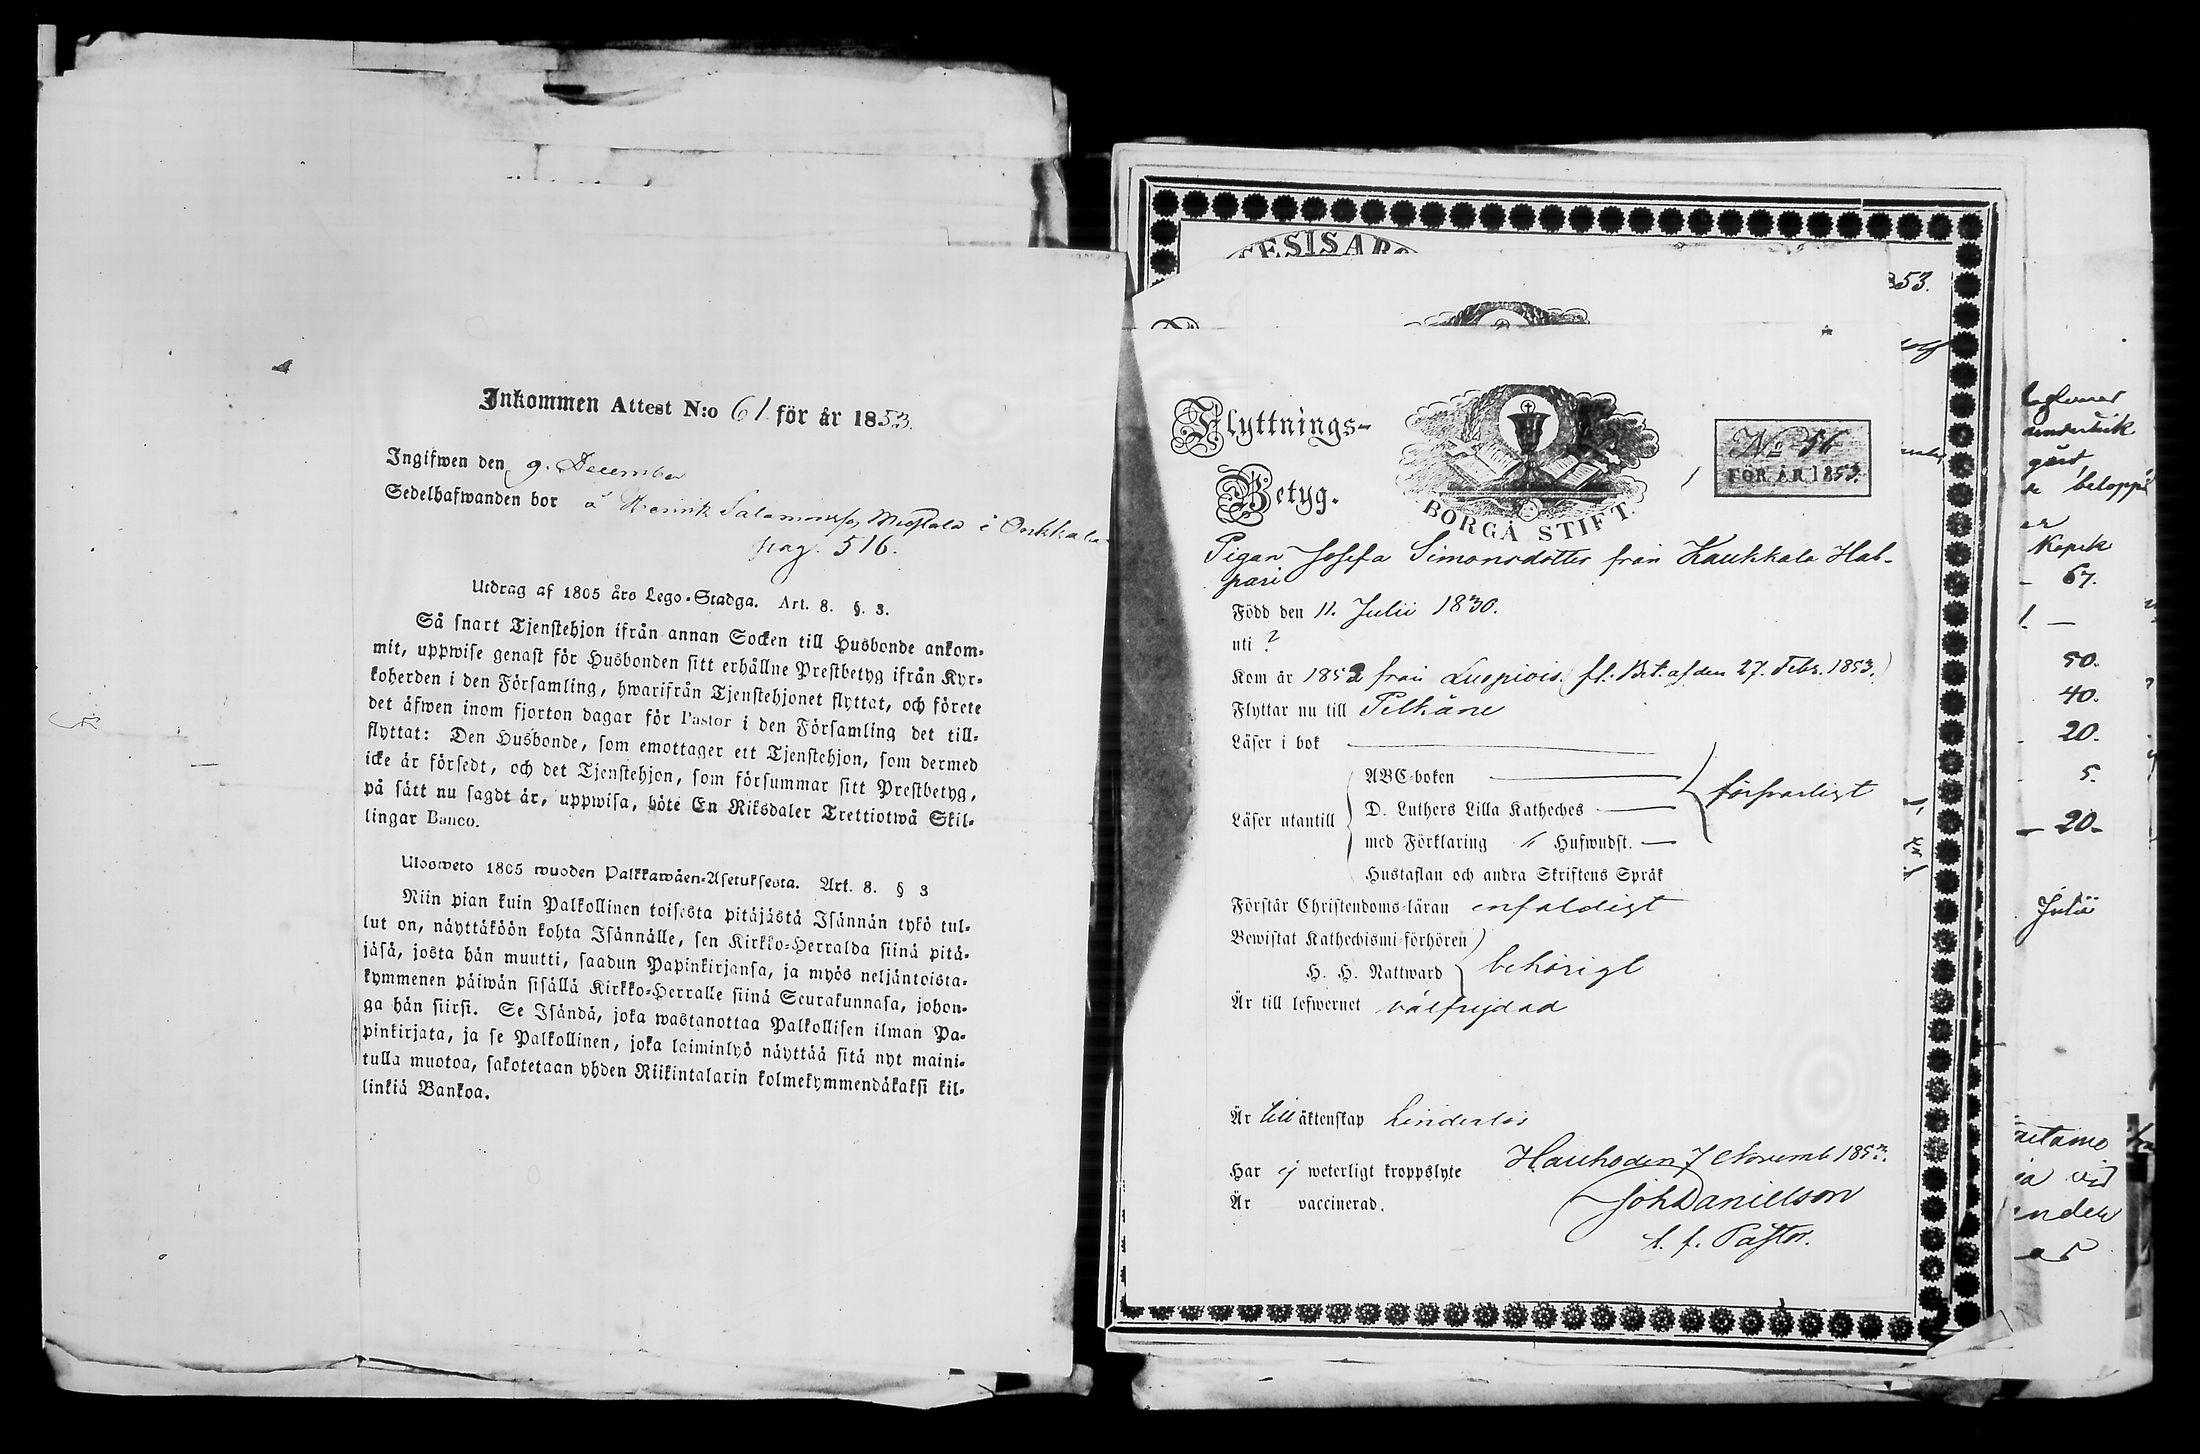 Inkommen Attest N:o 61 för år 1853.
Ingifwen den 9. December
Sedelhafwanden bor å Henrik Salomonsson i Onkkala
pag. 516.
Utdrag af 1805 års Lego-Stadga. Art. 8. §. 3.
Så snart Tjenstehjon ifrån annan Socken till Husbonde ankom-
mit, uppwise genast för Husbonden sitt erhållne Prestbetyg ifrån Kyr-
koherden i den Församling, hwarifrån Tjenstehjonet flyttat, och förete
det äfwen inom fjorton dagar för Pastor i den Församling det till-
flyttat: Den Husbonde, som emottager ett Tjenstehjon, som dermed
icke är försedt, och det Tjenstehjon, som försummar sitt Prestbetyg,
på sätt nu sagdt är, uppwisa, böte En Riksdaler Trettiotwå Skil-
lingar Banco.
Ulosweto 1805 wuoden Palkkawäen-Asetuksesta. Art. 8. § 3
Niin pian kuin Palkollinen toisesta pitäjästä Isännän tykö tul-
lut on, näyttäköön kohta Isännälle, sen Kirkko-Herralda siinä pitä-
jäsä, josta hän muutti, saadun Papinkirjansa, ja myös neljäntoista-
kymmenen päiwän sisällä Kirkko-Herralle siinä Seurakunnasa, johon-
ga hän siirsi. Se Isändä, joka wastanottaa Palkollisen ilman Pa-
pinkirjata, ja se Palkollinen, joka laiminlyö näyttää sitä nyt maini-
tulla muotoa, sakotetaan yhden Riikintalarin kolmekymmendäkaksi kil-
linkiä Bankoa.
53.
Flyttnings-
Betyg.
BORGÅ STIFT.
No 56
FÖR ÅR 1853.
Pigan Josefa Simonsdotter från Haukkala Hab-
pari
Född den 11. Julii 1830.
uti ?
Kom år 1852 från Luopiois (fl. Bet. af den 27. Febr. 1853.)
Flyttar nu till Pelkäne
Läser i bok
Läser utantill
ABC-boken
D. Luthers Lilla Katheches
med Förklaring 6 Hufwudst.
Hustaflan och andra Skriftens Språk
försvarligt
Förstår Christendoms-läran enfaldigt
Bewistat Kathechismi-förhören
H. H. Nattward
behörigt
Är till lefwernet välfrejdad
Är till äktenskap hinderlös
Har ej weterligt kroppslyte
Är vaccinerad.
Hauho den 7 Novemb 1853.
Joh Danielson
t. f. Pastor.
belopp
Kopek
67.
50.
40.
20.
5.
20
Julii